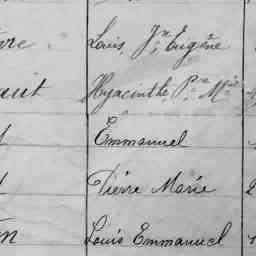 Louis, Jn Eugène
Hyacinthe, Pre Mie
Emmanuel
Pierre Marie
Louis Emmanuel